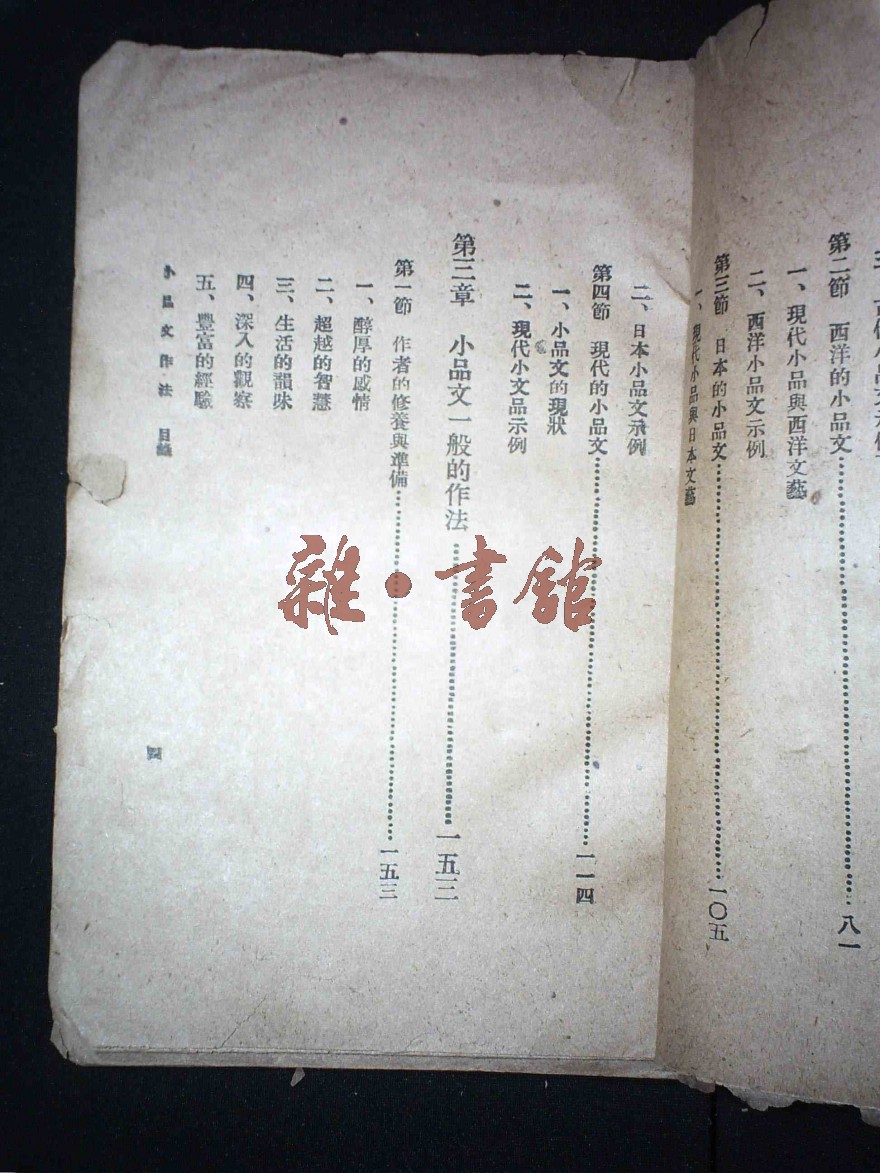 第二節　西洋的小品文…………八一
一、現代小品與西洋文藝
二、西洋小品文示例
第三節　日本的小品文…………一〇五
一、現代小品與日本文藝
二、日本小品文示例
第四節　現代的小品文…………一一四
一、小品文的現狀
二、現代小文品示例
第三章　小品文一般的作法…………一五三
第一節　作者的修養與準備…………一五三
一、醇厚的感情
二、超越的智慧
三、生活的韻味
四、深入的觀察
五、豐富的經驗
小品文作法　目錄
四
雜·書館